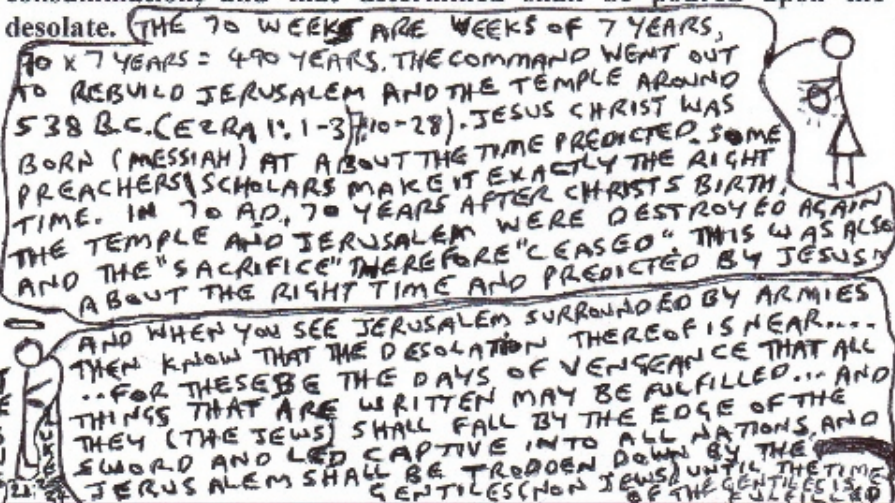 desolate.
THE 70 WEEKS ARE WEEKS OF 7 YEARS,
70 x 7 YEARS = 490 YEARS. THE COMMAND WENT OUT
TO REBUILD JERUSALEM AND THE TEMPLE AROUND
538 B.C. (EZRA 1:1-3) 7:10-28). JESUS CHRIST WAS
BORN (MESSIAH) AT ABOUT THE TIME PREDICTED. SOME
PREACHERS\SCHOLARS MAKE IT EXACTLY THE RIGHT
TIME. IN 70 AD., 70 YEARS AFTER CHRISTS BIRTH,
THE TEMPLE AND JERUSALEM WERE DESTROYED AGAIN
AND THE "SACRIFICE" THEREFORE "CEASED". THIS WAS ALSO
ABOUT THE RIGHT TIME AND PREDICTED BY JESUS:
AND WHEN YOU SEE JERUSALEM SURROUNDED BY ARMIES
THEN KNOW THAT THE DESOLATION THEREOF IS NEAR....
..FOR THESE BE THE DAYS OF VENGEANCE THAT ALL
THINGS THAT ARE WRITTEN MAY BE FULFILLED... AND
THEY (THE JEWS) SHALL FALL BY THE EDGE OF THE
SWORD AND LED CAPTIVE INTO ALL NATIONS AND
JERUSALEM SHALL BE TRODDEN DOWN BY THE
GENTILES (NON JEWS) UNTIL THE TIME
OF THE GENTILES IS
LUKE